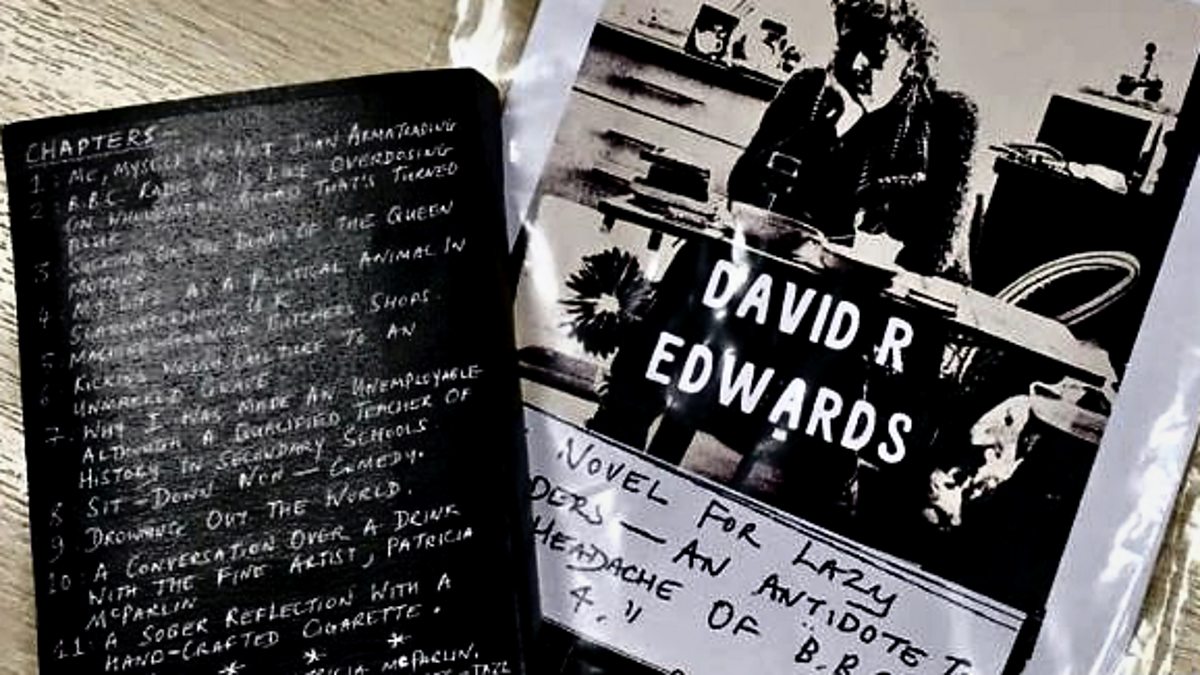 CHAPTERS—
1. ME, MYSELF I'M NOT JOAN ARMATRADING
2. B.B.C. RADIO 4 IS LIKE OVERDOSING
ON THAT'S TURNED
BLUE
3 ON THE OF THE QUEEN
MOTHER
4 MY LIFE AS A POLITICAL ANIMAL IN
U.K.
5 BUTCHERS SHOPS.
6 KICKING CULTURE TO AN
UNMARKED GRAVE
7. WHY I WAS MADE AN UNEMPLOYABLE
ALTHOUGH A QUALIFIED TEACHER OF
HISTORY IN SECONDARY SCHOOLS
8 SIT-DOWN NON—COMEDY.
9 DROWNING OUT THE WORLD.
10 A CONVERSATION OVER A DRINK
WITH THE FINE ARTIST, PATRICIA
McPARLIN
11. A SOBER REFLECTION WITH A
HAND-CRAFTED CIGARETTE.
* * *
McPARLIN.
JAZZ
DAVID R
EDWARDS
NOVEL FOR LAZY
DERS — AN ANTIDOTE T
HEADACHE OF B.B.C
4."